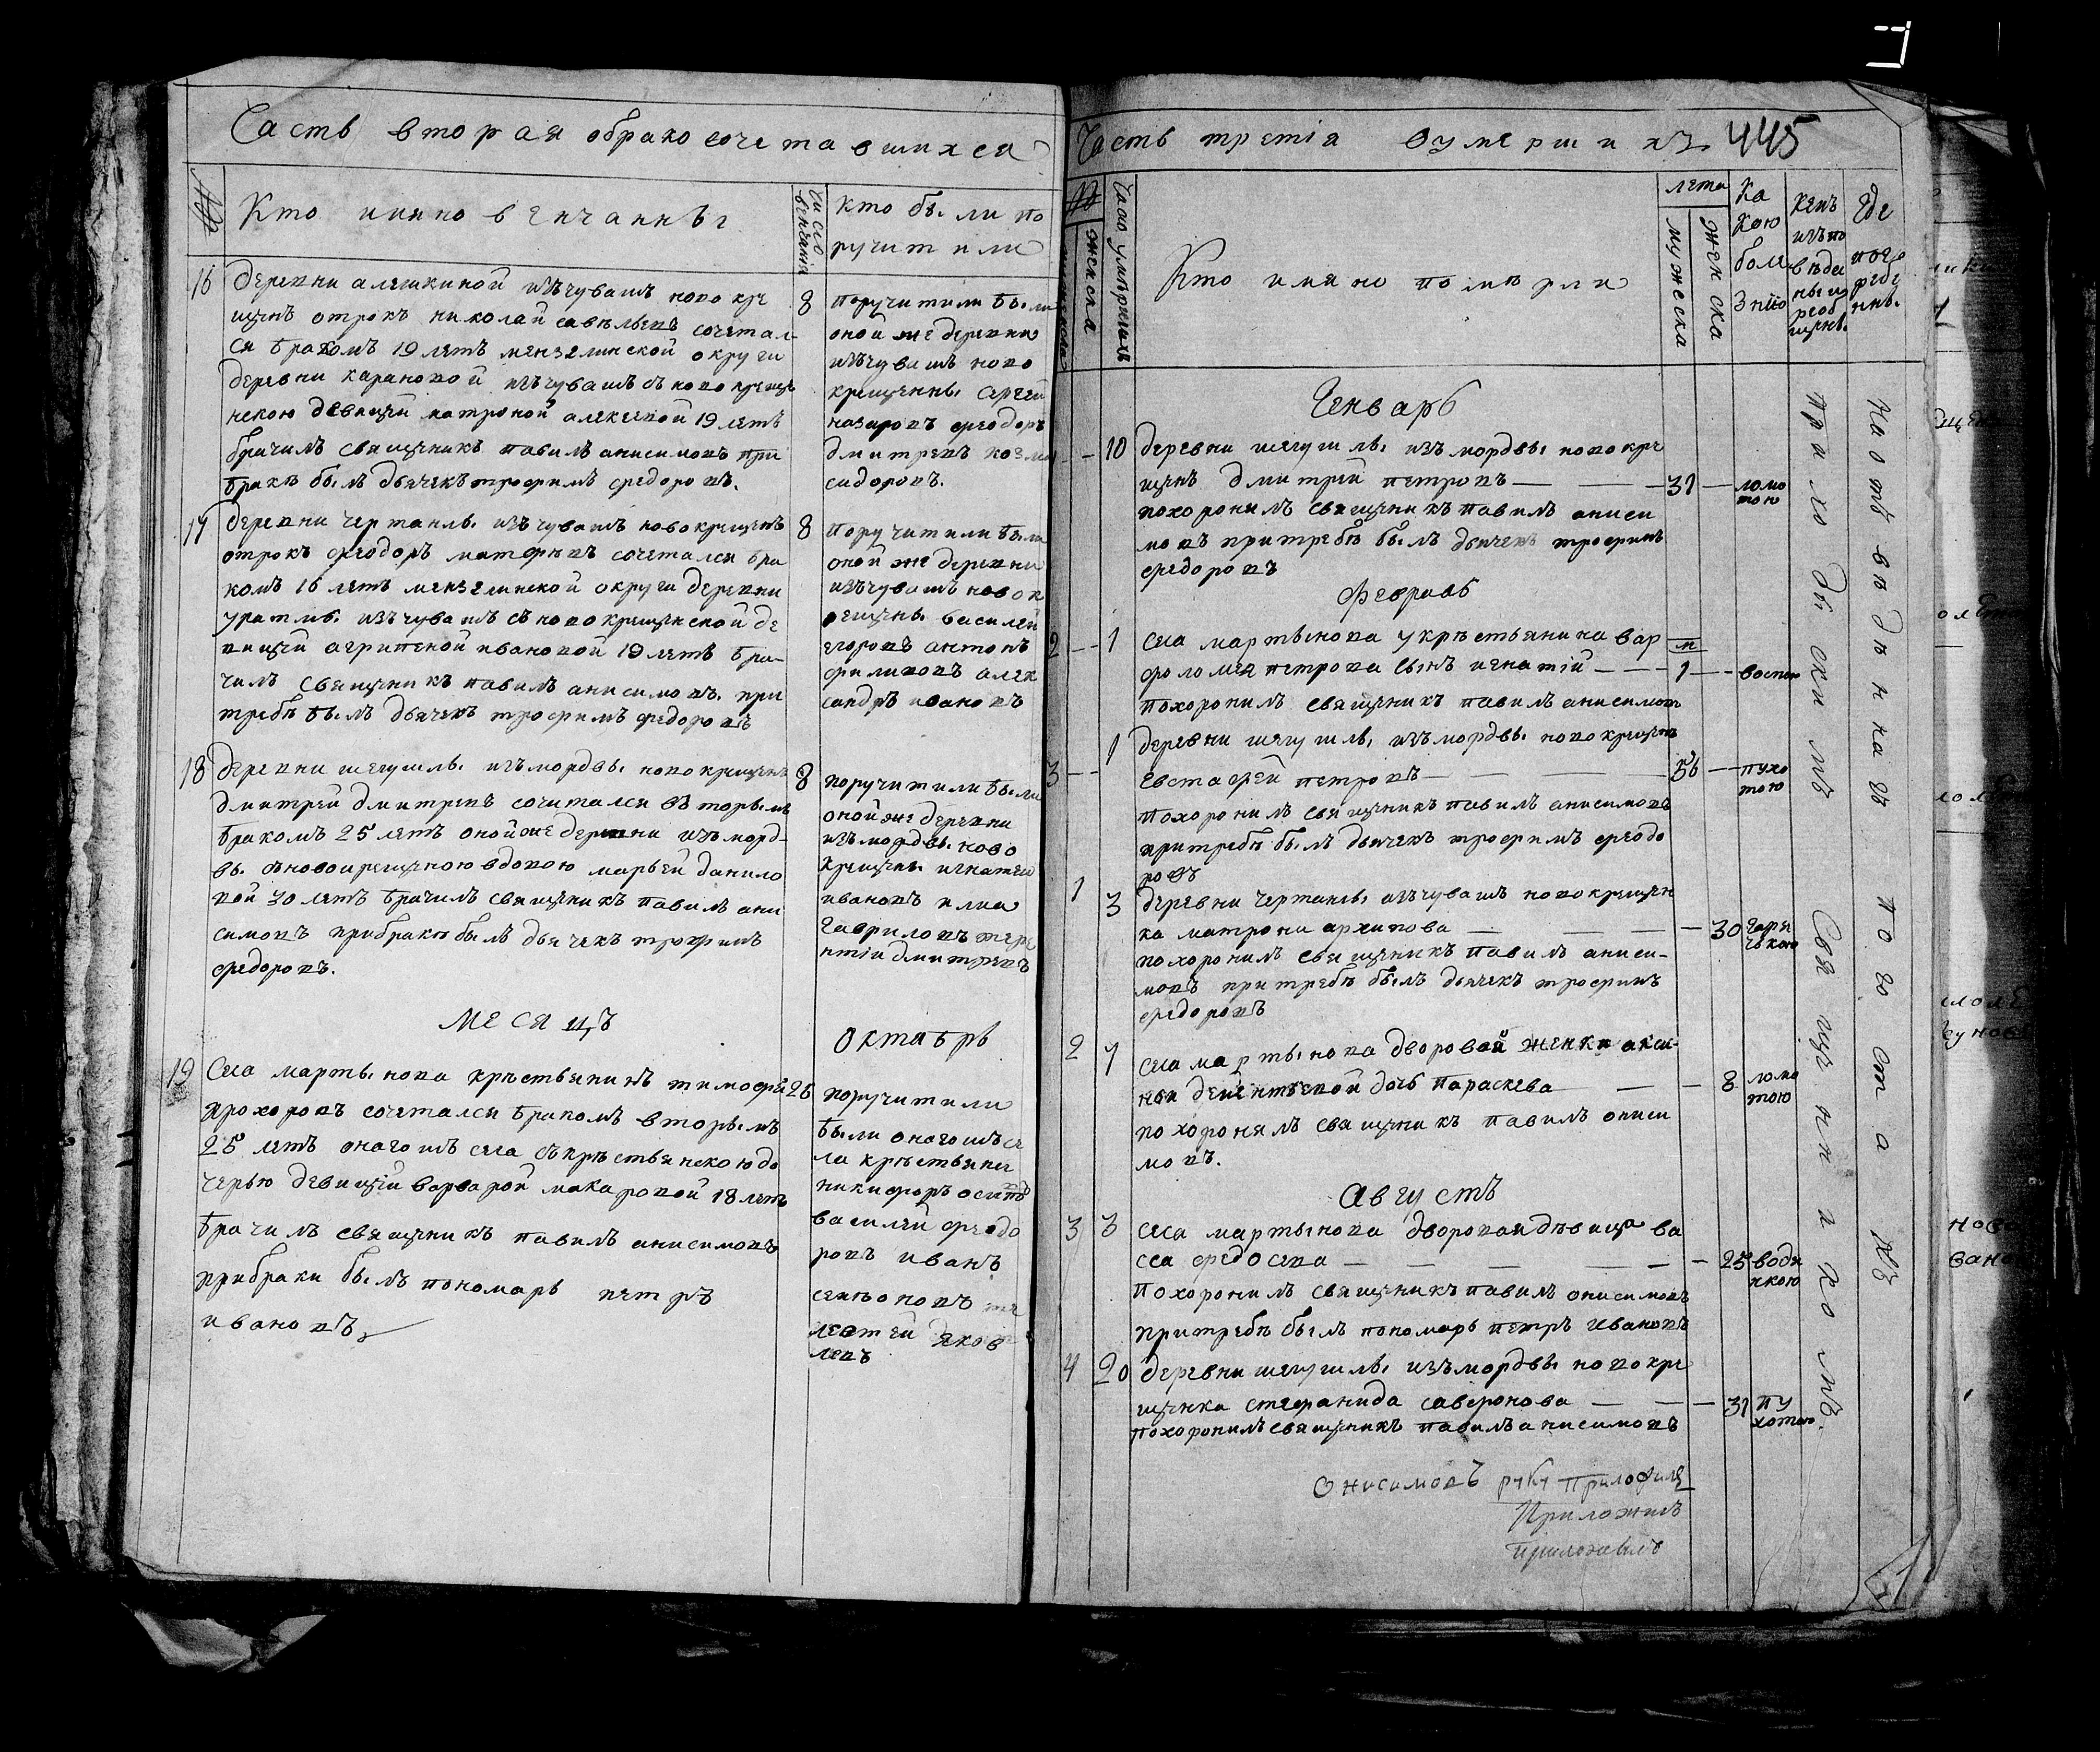 Часть вторая обракосочетавшихся
№
Кто имяно венчанны
Число венчания
кто были по
ручители
16
деревни алешкиной изъ чувашъ новокре
щенъ отрокъ николай савельевъ сочетал
ся бракомъ 19 летъ мензелинской округи
деревни карановой изъ чувашъ съ новокреще
нскою девицей матроной алекѣевой 19 летъ
брачилъ священникъ павилъ анисимовъ при
бракѣ былъ дьячекъ трофимъ федоровъ.
8
поручители были
оной же деревни
изъ чувашъ ново
крещенны сергей
назаровъ феодоръ
дмитревъ козма
сидоровъ.
17
деревни чертанлы изъ чувашъ новокрещенъ
отрокъ феодоръ матфѣевъ сочетался бра
комъ 16 летъ мензелинской округи деревни
уратмы изъ чувашъ съ новокрещенской де
вицей агрипеной ивановой 19 летъ бра-
чилъ священникъ павилъ анисимовъ при
требѣ былъ дьячекъ трофимъ федоровъ
8
поручители были
оной же деревни
изъ чувашъ новок
рещены василей
егоровъ антонъ
филиповъ алек
сандръ ивановъ
18
деревни шегушлы изъ мордвы новокрещенъ
дмитрей дмитревъ сочитался въторымъ
бракомъ 25 летъ оной же деревни изъ морд-
вы съ новокрещеною вдовою марьей данило
вой 30 летъ брачилъ священникъ павилъ ани
симовъ прибракѣ былъ дьячекъ трофимъ
федоровъ.
8
поручители были
оной же деревни
изъ мордвы ново
крещены игнатей
ивановъ илиа
гавриловъ тере
нтiй дмитревъ
месяцъ
октябрь
19
Села мартынова крѣстьянинъ тимофей
прохоровъ сочетался бракомъ вторымъ
25 летъ онагошъ села съ крѣстьянскою до
черью девицей варварой макаровой 18 летъ
брачилъ священникъ павилъ анисимовъ
прибраки былъ пономарь петръ
ивановъ
26
поручители
были онагошъ се
ла крѣстьяне
никифоръ осиповъ
василей феодо
ровъ иванъ
семионовъ
яков
левъ
Часть третiя оумершихъ 445
№
женска
Число умершихъ
Кто имяно помѣрли
лета
мужеска
женска
Ка
кою
боле
знiю
кемъ
изъпо
вѣда
ны и
реоб
щены.
Где
погре
бе
нны.
Генварь
10
деревни шегушлы изъ мордвы новокре
щенъ дмитрей петровъ — — 31 — ломо
тою
похоронилъ священникъ павилъ аниси
мовъ притребѣ былъ дьячекъ трофимъ
федоровъ
Февраль
2 — 1
села мартынова у крѣстьянина вар
фоломея петрова сынъ игнатiй — — м 1 — воспою
похоронилъ священникъ павилъ анисимовъ
3 — 1
деревни шегушлы изъ мордвы новокрещенъ
евстафей петровъ — — — 56 — пухо
тою
похоронилъ священникъ павилъ анисимовъ
притребѣ былъ дьячекъ трофимъ феодо
ровъ
1 3
деревни чертанлы изъ чувашъ новокрещен
ка матрона архипова — — — 30 горя
чькою
похоронилъ священникъ павилъ аниси-
мовъ притребѣ былъ дьячекъ трофимъ
федоровъ
2 7
села мартынова дворовой женки акси-
ньи дементьевой дочь параскева — — 8 ломо
тою
похоронялъ священникъ павилъ аниси
мовъ.
Августъ
3 3
села мартынова дворовая дѣвица ва
сса федосева — — — — 25 водя
нкою
похоронилъ священникъ павилъ анисимовъ
притребѣ былъ пономарь петръ ивановъ
4 20
деревни шегушлы изъ мордвы новокре
щенка стефанида саверонова — — — 31 пу
хотою
похоронилъ священникъ павилъ анисимовъ
приходскимъ священникомъ.
на отвѣденнахъ погостахъ
Онисимовъ руку
Приложилъ
приложилъ